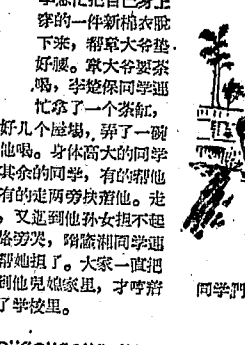 忙把自己身上
穿的一件新棉衣脱
下来，帮覃大爷垫
好腰。覃大爷要茶
喝，李楚保同学連
忙拿了一个茶缸，
好几个屋場，弄了一碗
他喝。身体高大的同学
其余的同学，有的帮他
有的走两旁扶着他。走
，又逅到他孙女担不起
路旁哭，同学連
帮她担了。大家一直把
到他兒媳家里，才哼着
了学校里。
同学們